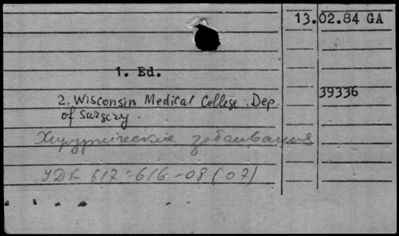 13.02.84 GA
1. Ed.
2. Wisconsin Medical College. Dep.
of Surgery.
39336
Хирургические заболевания
УДК 617:616-08 (07)